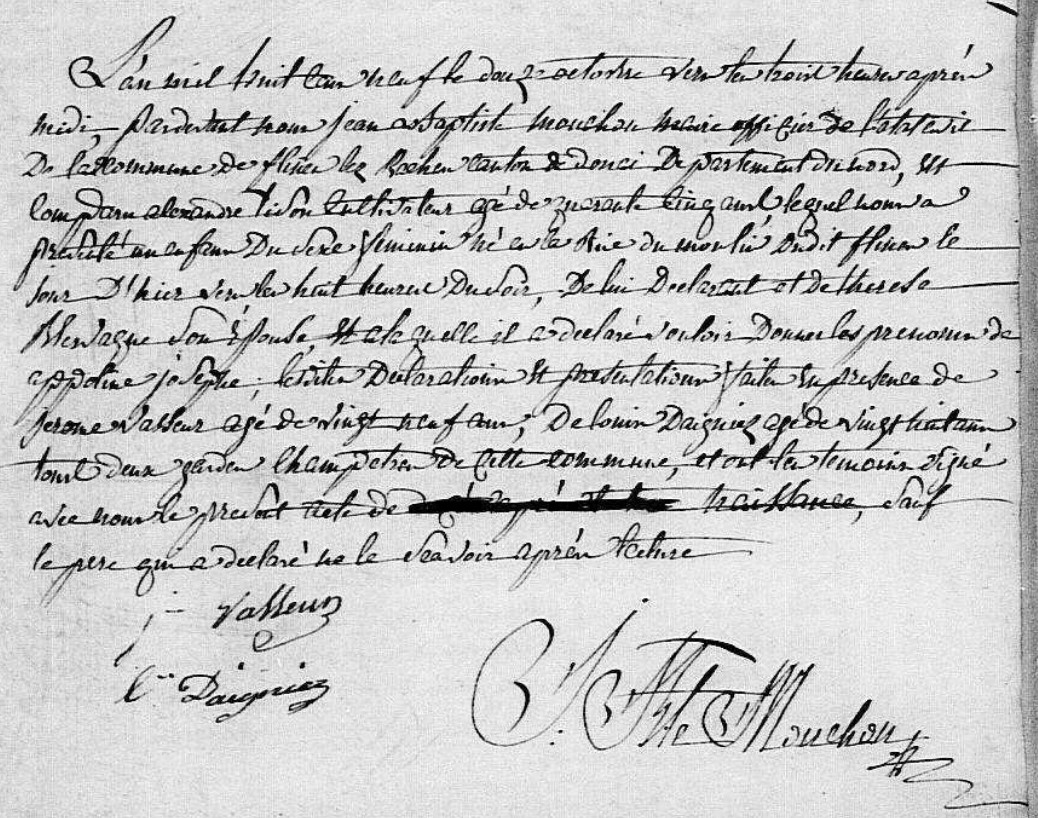 L'an mil huit cens neuf le douze octobre vers les trois heures après
midi, pardevant nous jean Baptiste mouchon maire officier de l'état civil
De la commune de flines lez Raches canton de douai Departement du nord, est
comparu alexandre tison cultivateur agé de quarante cinq ans, lequel nous a
presenté un enfant Du sexe feminin né en la Rue du moulin Dudit flines le
jour D'hier vers les huit heures Du soir, De lui Declarant et De therese
son Epouse, Et a laquelle il a declaré vouloir Donner les prenoms de
appoline josephe; lesdites Declarations Et presentations faites En presence de
jerome Vasseur agé de vingt neuf ans, De louis Daigniez agé de vingt huit ans
tous deux gardes champetres De cette commune, et ont les temoins signé
avec nous le present acte de naissance, sauf
le pere qui a declaré ne le sçavoir après lecture
j Vasseur
L. Daigniez
J. Bte Mouchon